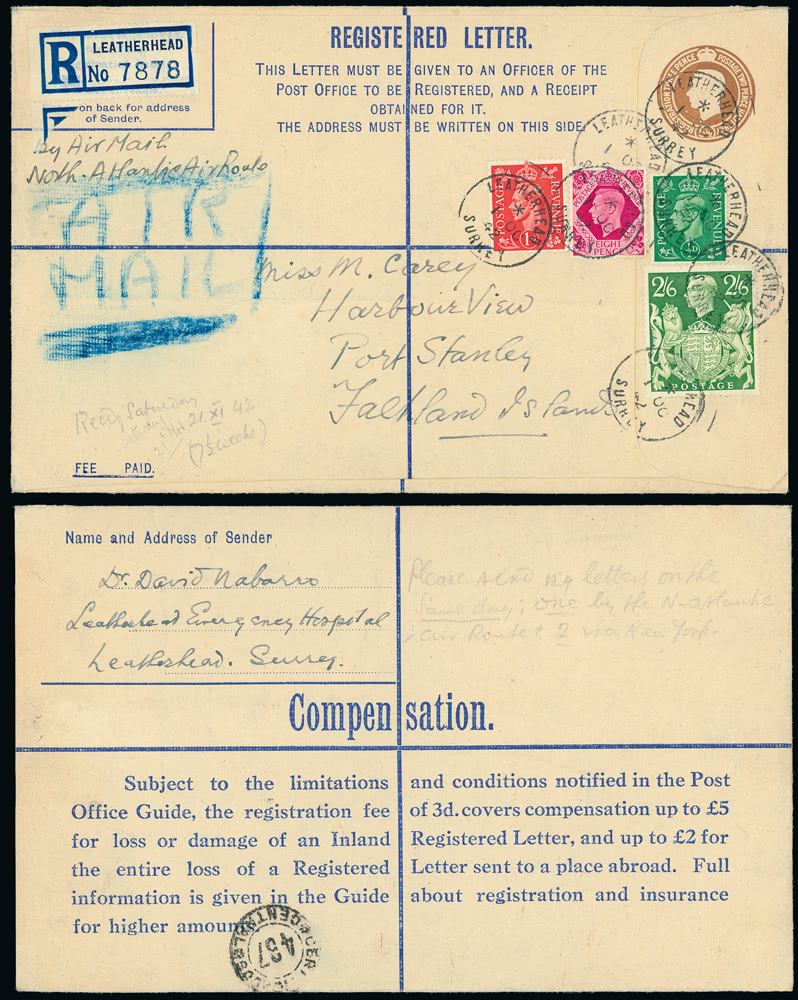 R
LEATHERHEAD
No 7878
REGISTERED LETTER.
THIS LETTER MUST BE GIVEN TO AN OFFICER OF THE
POST OFFICE TO BE REGISTERED, AND A RECEIPT
OBTAINED FOR IT.
THE ADDRESS MUST BE WRITTEN ON THIS SIDE
on back for address
of Sender.
By Air Mail
North Atlantic Air Route
AIR
MAIL
LEATHERHEAD
SURREY
POSTAGE REVENUE
1D
EIGHT PENCE
POSTAGE REVENUE
½D
2/6 2/6
POSTAGE
LEATHERHEAD
1 OC
42
SURREY
Miss M. Carey
Harbour View
Port Stanley
Falkland Islands
Recd Saturday
21 XI 42
(7½ weeks)
FEE PAID.
Name and Address of Sender
Dr. David Nabarro
Leatherhead Emergency Hospital
Leatherhead. Surrey.
Please send my letters on the
same day; one by the N-Atlantic
air Route & 2 via New York.
Compensation.
Subject to the limitations and conditions notified in the Post
Office Guide, the registration fee of 3d. covers compensation up to £5
for loss or damage of an Inland Registered Letter, and up to £2 for
the entire loss of a Registered Letter sent to a place abroad. Full
information is given in the Guide about registration and insurance
for higher amount